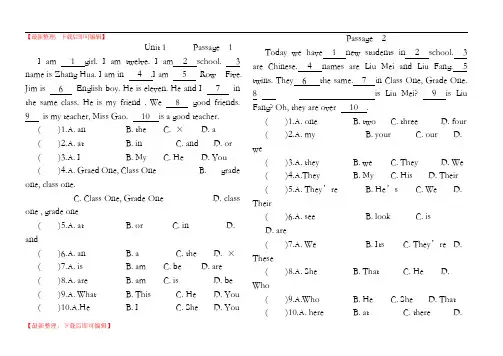 【最新整理，下载后即可编辑】
Unit 1 Passage 1
I am 1 girl. I am twelve. I am 2 school. 3
name is Zhang Hua. I am in 4 .I am 5 Row Five.
Jim is 6 English boy. He is eleven. He and I 7 in
the same class. He is my friend . We 8 good friends.
9 is my teacher, Miss Gao. 10 is a good teacher.
( )1.A. an B. the C. × D. a
( )2.A. at B. in C. and D. or
( )3.A. I B. My C. He D. You
( )4.A. Graed One, Class One B. grade
one, class one.
C. Class One, Grade One D. class
one , grade one
( )5.A. at B. or C. in D.
and
( )6.A. an B. a C. the D. ×
( )7.A. is B. am C. be D. are
( )8.A. are B. am C. is D. be
( )9.A. What B. This C. He D. You
( )10.A.He B. I C. She D. You
【最新整理，下载后即可编辑】
Passage 2
Today we have 1 new students in 2 school. 3
are Chinese. 4 names are Liu Mei and Liu Fang 5
twins. They 6 the same. 7 in Class One, Grade One.
8 is Liu Mei? 9 is Liu
Fang? Oh, they are over 10 .
( )1.A. one B. two C. three D. four
( )2.A. my B. your C. our D.
we
( )3.A. they B. we C. They D. We
( )4.A.They B. My C. His D. Their
( )5.A. They’re B. He’s C. We D.
Their
( )6.A. see B. look C. is
D. are
( )7.A. We B. Its C. They’re D.
These
( )8.A. She B. That C. He D.
Who
( )9.A.Who B. He C. She D. That
( )10.A. here B. at C. there D.